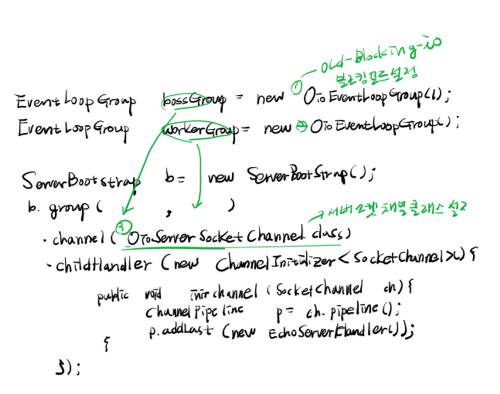 ① Old-Blocking-io
블로킹모드설정
EventLoopGroup bossGroup = new OioEventLoopGroup(1);
EventLoopGroup workerGroup = new ② OioEventLoopGroup();
ServerBootstrap b = new ServerBootStrap();
b. group ( , )
서버소켓 채널 클래스 설정
. channel ( ③ OioServerSocketChannel class)
. childHandler (new ChannelInitializer<SocketChannel>() {
public void initchannel (SocketChannel ch) {
ChannelPipeline p = ch. pipeline();
p.addLast (new EchoServerHandler());
}
});